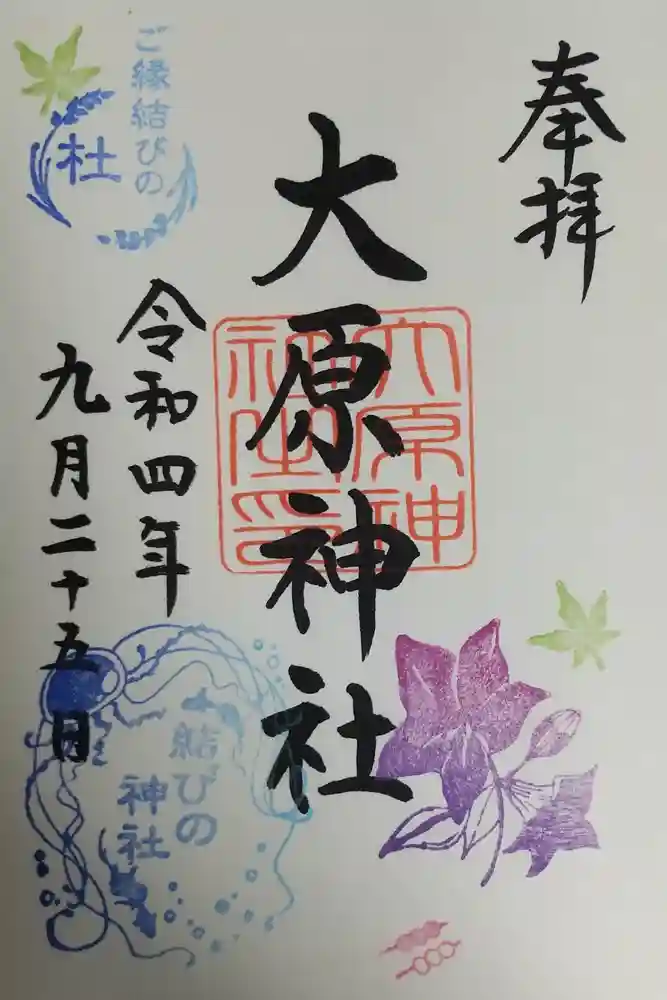 奉拝
大原神社
大原神社之印
令和四年
九月二十五日
ご縁結びの
杜
結びの
神社